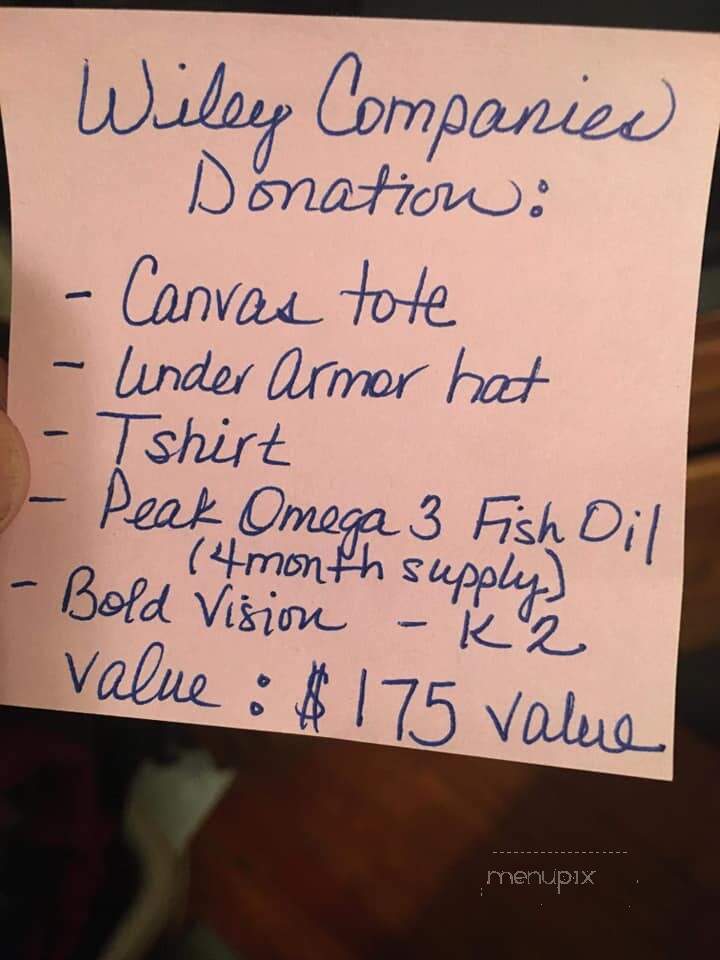 Wiley Companies
Donation:
- Canvas tote
- Under Armor hat
- Tshirt
- Peak Omega 3 Fish Oil
(4 month supply)
- Bold Vision - K2
value: $175 value
menupix